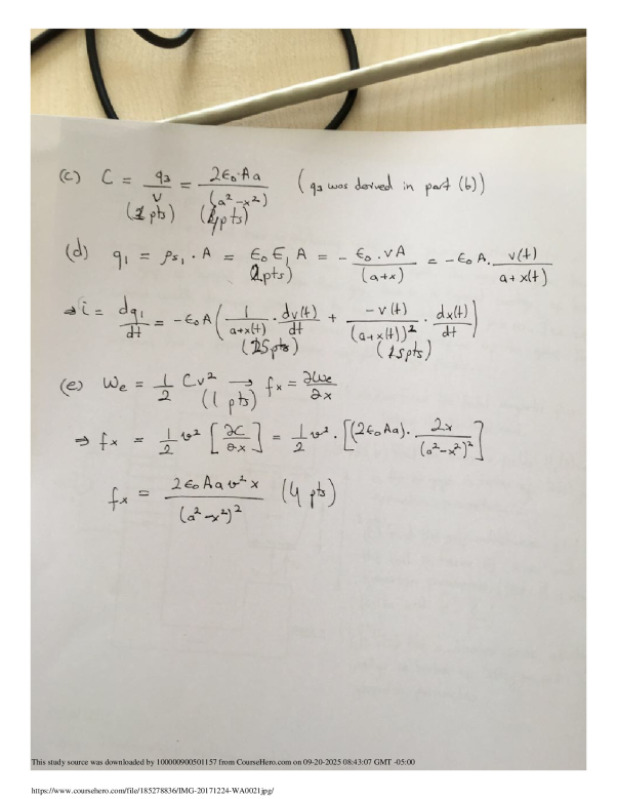 (c) C = q₂/v = 2ε₀Aa/(a²-x²) (q₂ was derived in part (b))
(1 pts) (4 pts)
(d) q₁ = ρs₁ · A = ε₀E₁A = - ε₀·vA/(a+x) = -ε₀A · v(t)/a+x(t)
(2pts)
⇒ i = dq₁/dt = -ε₀A(1/a+x(t) · dv(t)/dt + -v(t)/(a+x(t))² · dx(t)/dt)
(1.5pts) (1.5pts)
(e) We = 1/2 Cv² → fx = ∂We/∂x
(1 pts)
⇒ fx = 1/2 v² [∂C/∂x] = 1/2 v² · [(2ε₀Aa) · 2x/(a²-x²)²]
fx = 2ε₀Aav²x/(a²-x²)² (4 pts)
This study source was downloaded by 100000900501157 from CourseHero.com on 09-20-2025 08:43:07 GMT -05:00
https://www.coursehero.com/file/185278836/IMG-20171224-WA0021jpg/